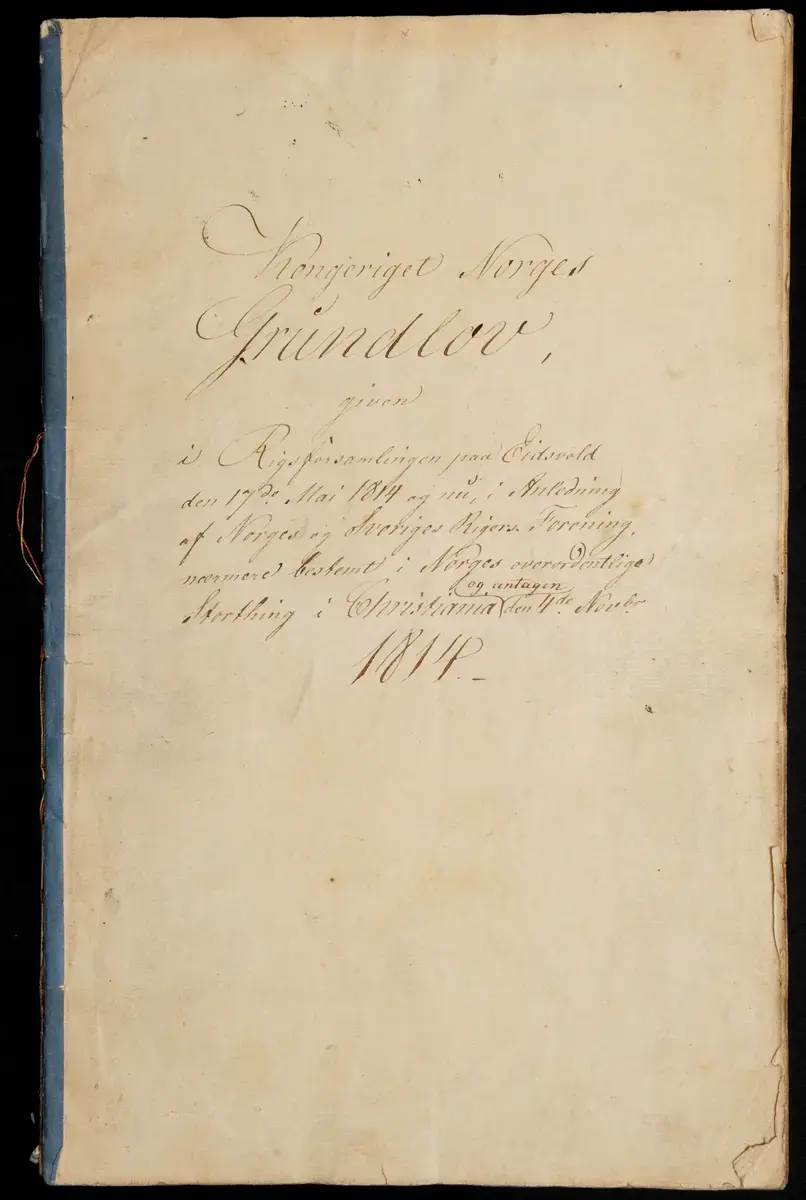 Kongeriget Norges
Grundlov,
given
i Rigsforsamlingen paa Eidsvold
den 17de Mai 1814 og nu, i Anledning
af Norges og Sveriges Rigers Forening,
nærmere bestemt i Norges overordentlige
og antagen
Storthing i Christiania den 4de Novbr
1814.-